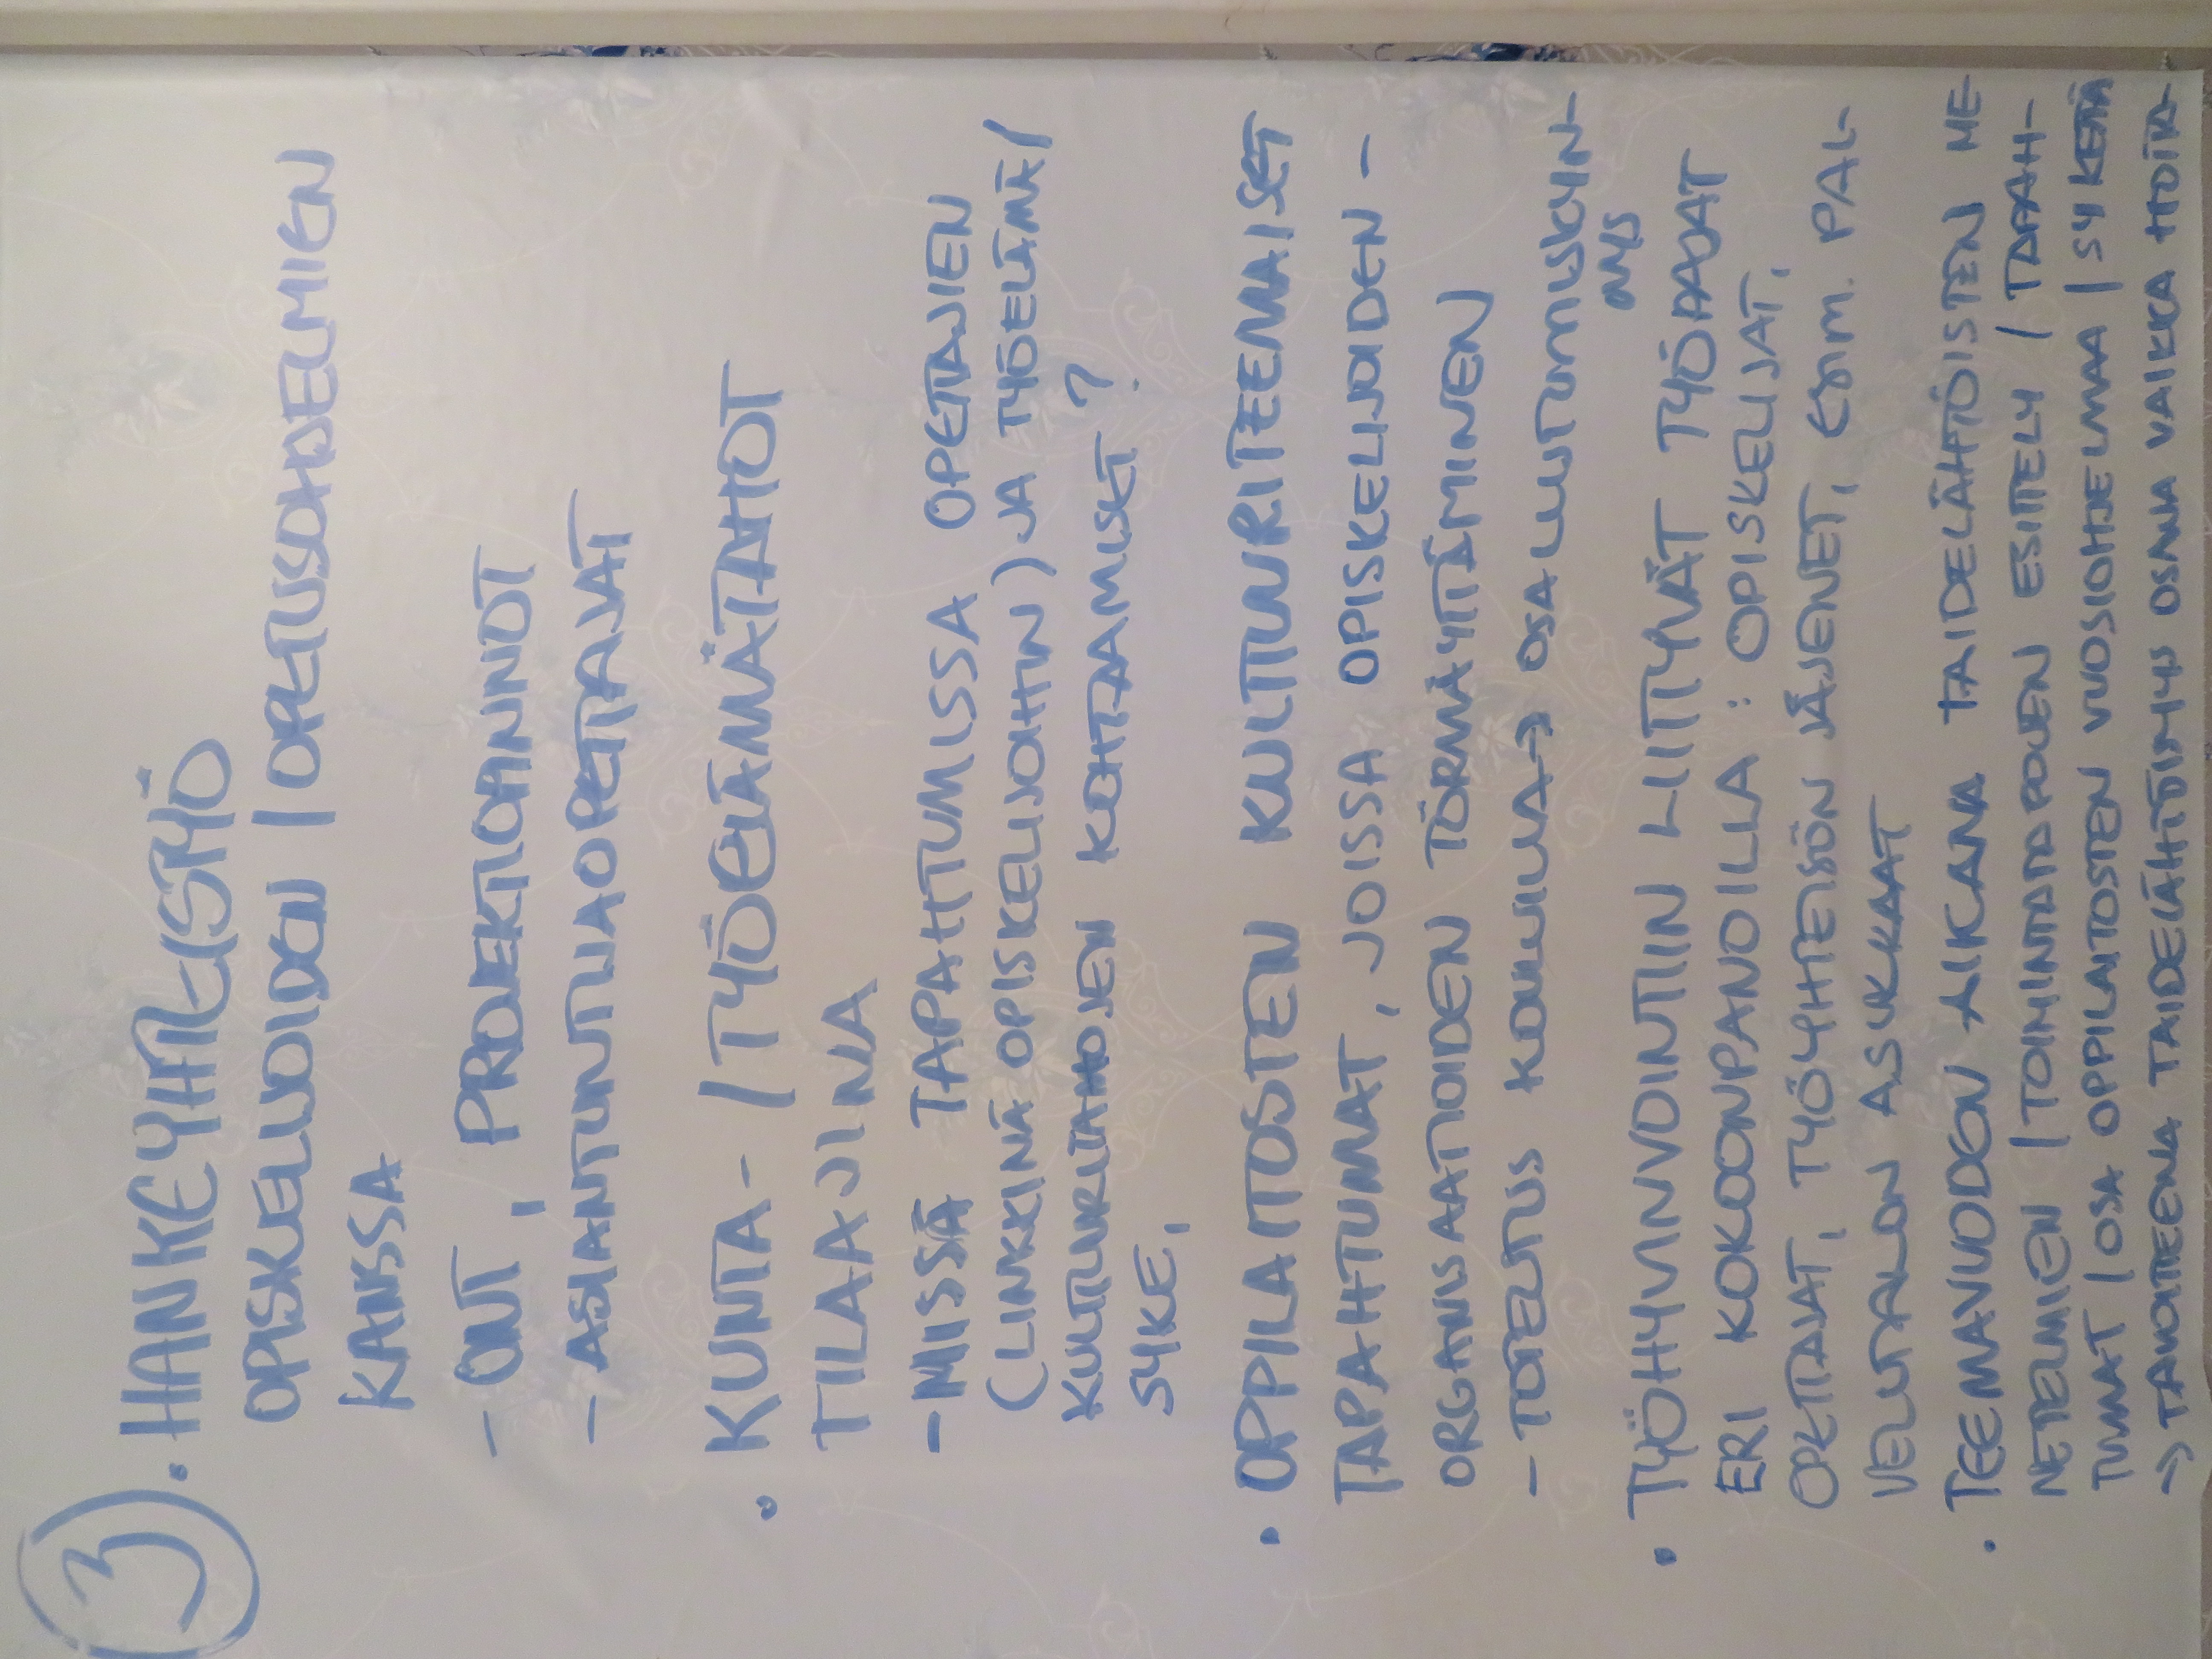 3
• HANKEYHTEISTYÖ
OPISKELIJOIDEN / OPETUSOHJELMIEN
KANSSA
- ONT, PROJEKTIOPINNOT
- ASIANTUNTIJAOPETTAJAT
• KUNTA- / TYÖELÄMÄTAHOT
TILAAJINA
- MISSÄ TAPAHTUMISSA OPETTAJIEN
(LINKKINÄ OPISKELIJOIHIN) JA TYÖELÄMÄ/
KULTTUURITAHOJEN KOHTAAMISET ?
SYKE,
• OPPILAITOSTEN KULTTUURITEEMAISET
TAPAHTUMAT, JOISSA OPISKELIJOIDEN -
ORGANISAATIOIDEN TÖRMÄYTTÄMINEN
- TOTEUTUS KOULUILLA → OSALLISTUMISKYN-
NYS
• TYÖHYVINVOINTIIN LIITTYVÄT TYÖPAJAT
ERI KOKOONPANOILLA : OPISKELIJAT,
OPETTAJAT, TYÖYHTEISÖN JÄSENET, ESIM. PAL-
VELUTALON ASUKKAAT
• TEEMAVUODEN AIKANA TAIDELÄHTÖISTEN ME-
NETELMIEN / TOIMINTATAPOJEN ESITTELY / TAPAH-
TUMAT / OSA OPPILAITOSTEN VUOSIOHJELMAA / SYKETTÄ
→ TAVOITTEENA TAIDELÄHTÖISYYS OSANA VAIKKA HOITA-